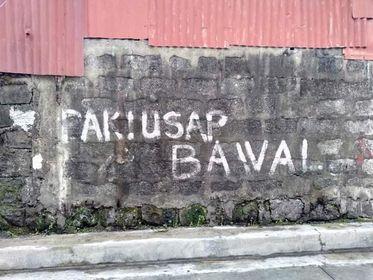 PAKIUSAP
BAWAL